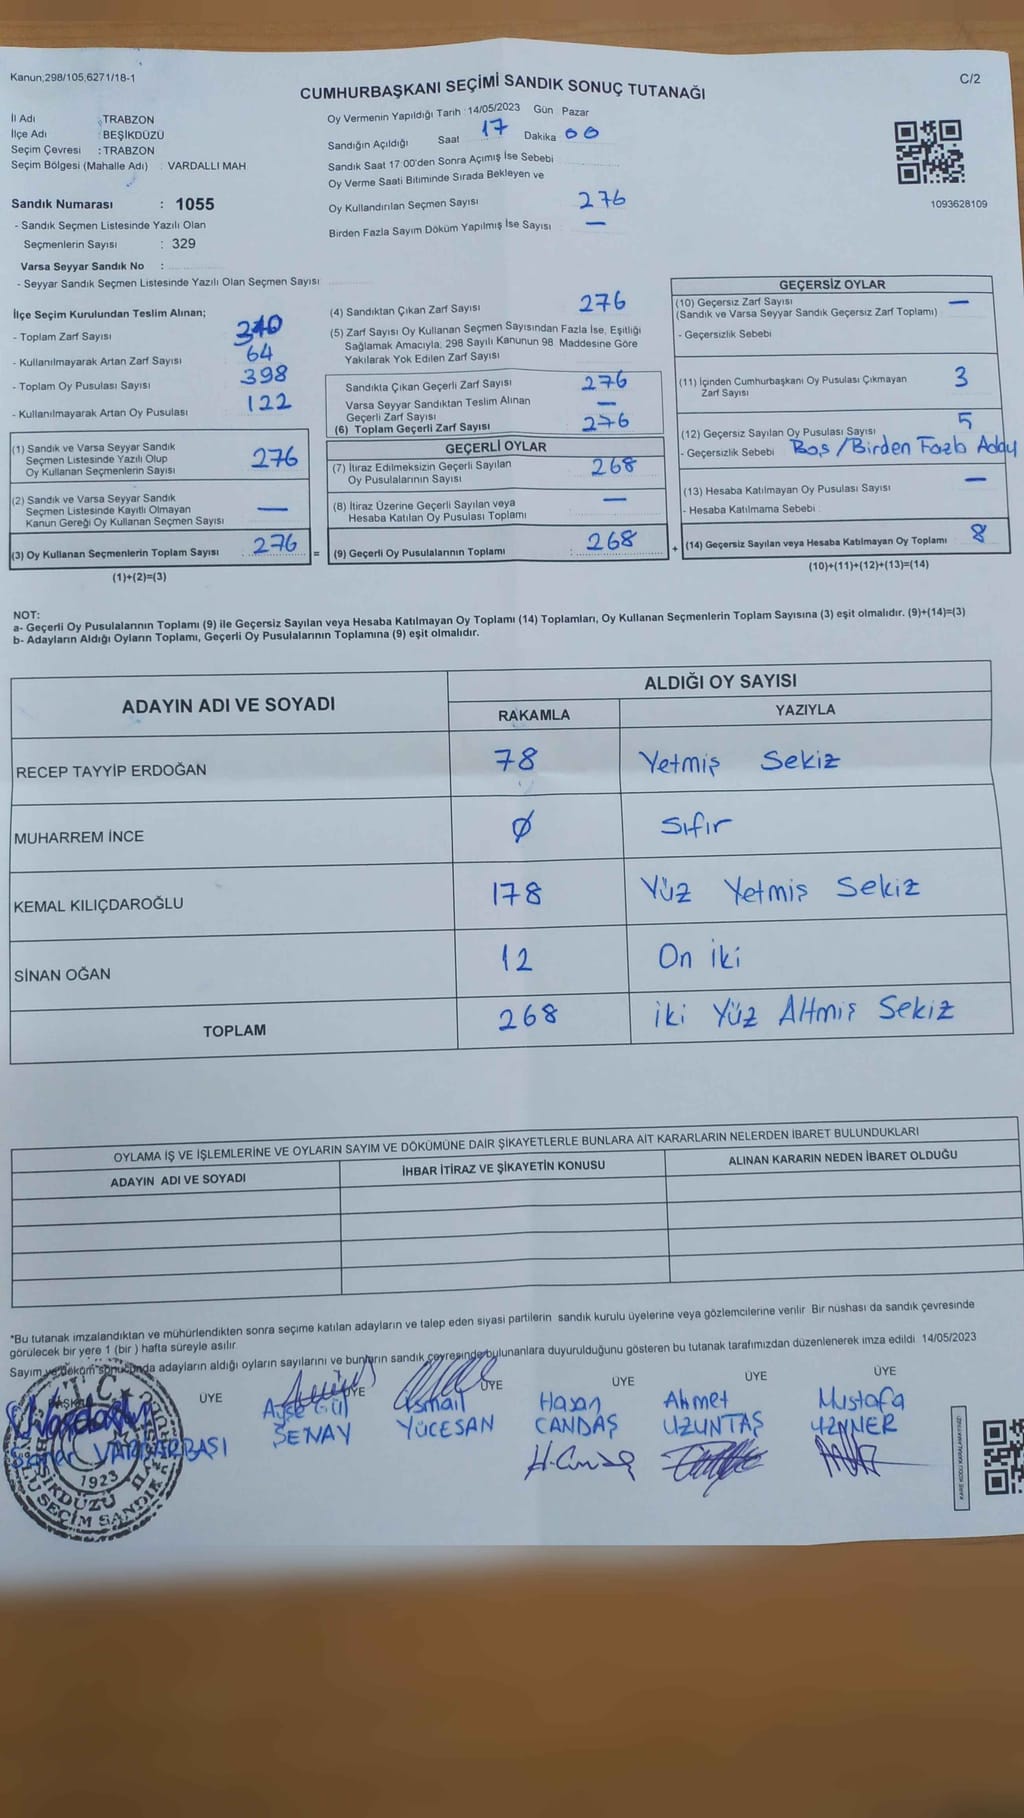 Kanun;298/105,6271/18-1
C/2
CUMHURBAŞKANI SEÇİMİ SANDIK SONUÇ TUTANAĞI
İl Adı : TRABZON
İlçe Adı : BEŞİKDÜZÜ
Seçim Çevresi : TRABZON
Seçim Bölgesi (Mahalle Adı) : VARDALLI MAH
Sandık Numarası : 1055
- Sandık Seçmen Listesinde Yazılı Olan
Seçmenlerin Sayısı : 329
Varsa Seyyar Sandık No :
- Seyyar Sandık Seçmen Listesinde Yazılı Olan Seçmen Sayısı
Oy Vermenin Yapıldığı Tarih : 14/05/2023 Gün Pazar
Sandığın Açıldığı Saat 17 Dakika 00
Sandık Saat 17:00'den Sonra Açımış İse Sebebi
Oy Verme Saati Bitiminde Sırada Bekleyen ve
Oy Kullandırılan Seçmen Sayısı 276
Birden Fazla Sayım Döküm Yapılmış İse Sayısı —
1093628109
İlçe Seçim Kurulundan Teslim Alınan;
- Toplam Zarf Sayısı 340
- Kullanılmayarak Artan Zarf Sayısı 64
- Toplam Oy Pusulası Sayısı 398
- Kullanılmayarak Artan Oy Pusulası 122
(1) Sandık ve Varsa Seyyar Sandık
Seçmen Listesinde Yazılı Olup
Oy Kullanan Seçmenlerin Sayısı 276
(2) Sandık ve Varsa Seyyar Sandık
Seçmen Listesinde Kayıtlı Olmayan
Kanun Gereği Oy Kullanan Seçmen Sayısı —
(3) Oy Kullanan Seçmenlerin Toplam Sayısı : 276 =
(1)+(2)=(3)
(4) Sandıktan Çıkan Zarf Sayısı 276
(5) Zarf Sayısı Oy Kullanan Seçmen Sayısından Fazla İse, Eşitliği
Sağlamak Amacıyla, 298 Sayılı Kanunun 98. Maddesine Göre
Yakılarak Yok Edilen Zarf Sayısı
Sandıkta Çıkan Geçerli Zarf Sayısı 276
Varsa Seyyar Sandıktan Teslim Alınan
Geçerli Zarf Sayısı —
(6) Toplam Geçerli Zarf Sayısı 276
GEÇERLİ OYLAR
(7) İtiraz Edilmeksizin Geçerli Sayılan
Oy Pusulalarının Sayısı 268
(8) İtiraz Üzerine Geçerli Sayılan veya
Hesaba Katılan Oy Pusulası Toplamı —
(9) Geçerli Oy Pusulalarının Toplamı : 268 +
GEÇERSİZ OYLAR
(10) Geçersiz Zarf Sayısı —
(Sandık ve Varsa Seyyar Sandık Geçersiz Zarf Toplamı)
- Geçersizlik Sebebi
(11) İçinden Cumhurbaşkanı Oy Pusulası Çıkmayan
Zarf Sayısı 3
(12) Geçersiz Sayılan Oy Pusulası Sayısı 5
- Geçersizlik Sebebi Boş/Birden Fazla Aday
(13) Hesaba Katılmayan Oy Pusulası Sayısı —
- Hesaba Katılmama Sebebi
(14) Geçersiz Sayılan veya Hesaba Katılmayan Oy Toplamı 8
(10)+(11)+(12)+(13)=(14)
NOT:
a- Geçerli Oy Pusulalarının Toplamı (9) ile Geçersiz Sayılan veya Hesaba Katılmayan Oy Toplamı (14) Toplamları, Oy Kullanan Seçmenlerin Toplam Sayısına (3) eşit olmalıdır. (9)+(14)=(3)
b- Adayların Aldığı Oyların Toplamı, Geçerli Oy Pusulalarının Toplamına (9) eşit olmalıdır.
ADAYIN ADI VE SOYADI
ALDIĞI OY SAYISI
RAKAMLA YAZIYLA
RECEP TAYYİP ERDOĞAN 78 Yetmiş Sekiz
MUHARREM İNCE 0 Sıfır
KEMAL KILIÇDAROĞLU 178 Yüz Yetmiş Sekiz
SİNAN OĞAN 12 On iki
TOPLAM 268 iki Yüz Altmış Sekiz
OYLAMA İŞ VE İŞLEMLERİNE VE OYLARIN SAYIM VE DÖKÜMÜNE DAİR ŞİKAYETLERLE BUNLARA AİT KARARLARIN NELERDEN İBARET BULUNDUKLARI
ADAYIN ADI VE SOYADI İHBAR İTİRAZ VE ŞİKAYETİN KONUSU ALINAN KARARIN NEDEN İBARET OLDUĞU
*Bu tutanak imzalandıktan ve mühürlendikten sonra seçime katılan adayların ve talep eden siyasi partilerin sandık kurulu üyelerine veya gözlemcilerine verilir. Bir nüshası da sandık çevresinde
görülecek bir yere 1 (bir ) hafta süreyle asılır.
Sayım ve döküm sonucunda adayların aldığı oyların sayılarını ve bunların sandık çevresinde bulunanlara duyurulduğunu gösteren bu tutanak tarafımızdan düzenlenerek imza edildi. 14/05/2023
BAŞKAN ÜYE ÜYE ÜYE ÜYE ÜYE ÜYE
Ayşe Gül İsmail Hasan Ahmet Mustafa
ŞENAY YÜCESAN CANDAŞ UZUNTAŞ
T.C.
1923
KARE KODU KARALAMAYINIZ!